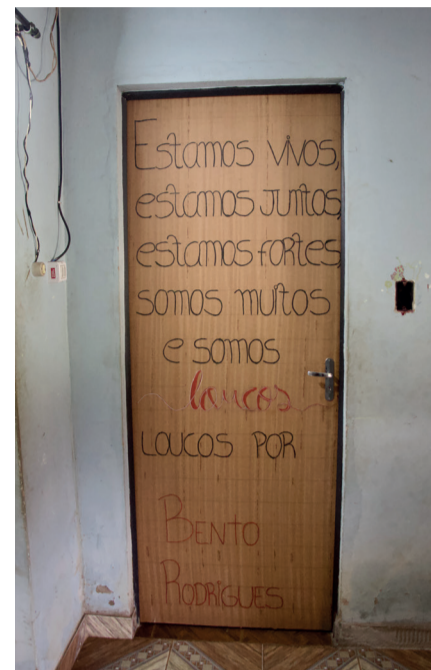 Estamos vivos,
estamos juntos,
estamos fortes,
somos muitos
e somos
loucos
LOUCOS POR
BENTO
RODRIGUES